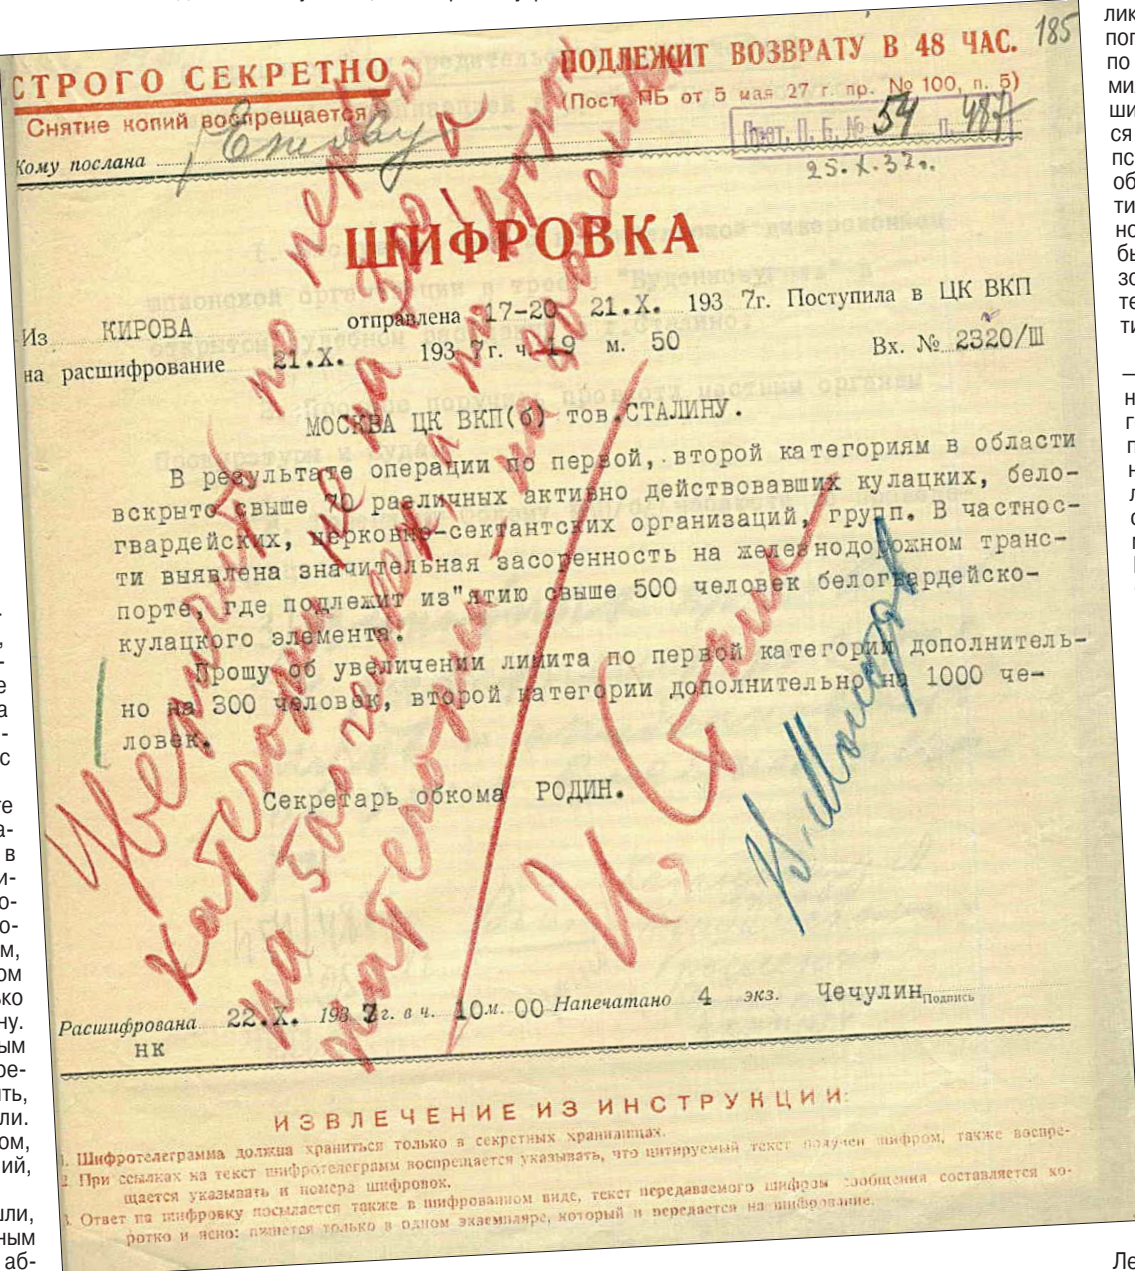 СТРОГО СЕКРЕТНО
Снятие копий воспрещается
ПОДЛЕЖИТ ВОЗВРАТУ В 48 ЧАС.
185
(Пост. ПБ от 5 мая 27 г. пр. № 100, п. 5)
Прот. П. Б. № 54 п. 487
25.X.37г.
Кому послана Ежову
ШИФРОВКА
Из КИРОВА отправлена 17-20 21.X. 1937г. Поступила в ЦК ВКП
на расшифрование 21.X. 1937г. ч. 19 м. 50 Вх. № 2320/Ш
МОСКВА ЦК ВКП(б) тов.СТАЛИНУ.
В результате операции по первой, второй категориям в области
вскрыто свыше 70 различных активно действовавших кулацких, бело-
гвардейских, церковно-сектантских организаций, групп. В частнос-
ти выявлена значительная засоренность на железнодорожном транс-
порте, где подлежит из"ятию свыше 500 человек белогвардейско-
кулацкого элемента.
Прошу об увеличении лимита по первой категории дополнитель-
но на 300 человек, второй категории дополнительно на 1000 че-
ловек.
Секретарь обкома РОДИН.
Увеличить по первой
категории не на 300, а
на 500 человек, а по второй
категории – на 800 человек
И. Сталин
В. Молотов
Расшифрована 22.X. 1937г. в ч. 10 м. 00 Напечатано 4 экз. Чечулин Подпись
НК
ИЗВЛЕЧЕНИЕ ИЗ ИНСТРУКЦИИ:
1. Шифротелеграмма должна храниться только в секретных хранилищах.
2. При ссылках на текст шифротелеграмм воспрещается указывать, что цитируемый текст получен шифром, также воспре-
щается указывать и номера шифровок.
3. Ответ на шифровку посылается также в шифрованном виде, текст передаваемого шифром сообщения составляется ко-
ротко и ясно: пишется только в одном экземпляре, который и передается на шифрование.